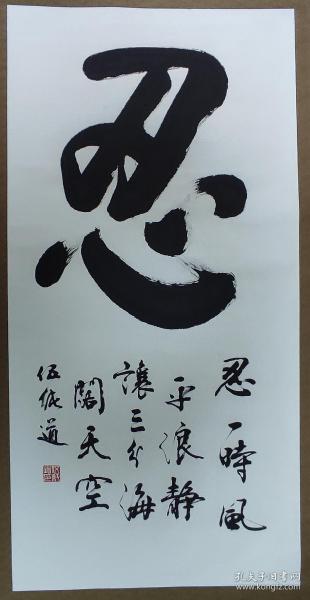 忍
忍一時風
平浪静
讓三分海
闊天空
伍纯道
孔夫子旧书网
www.kongfz.com